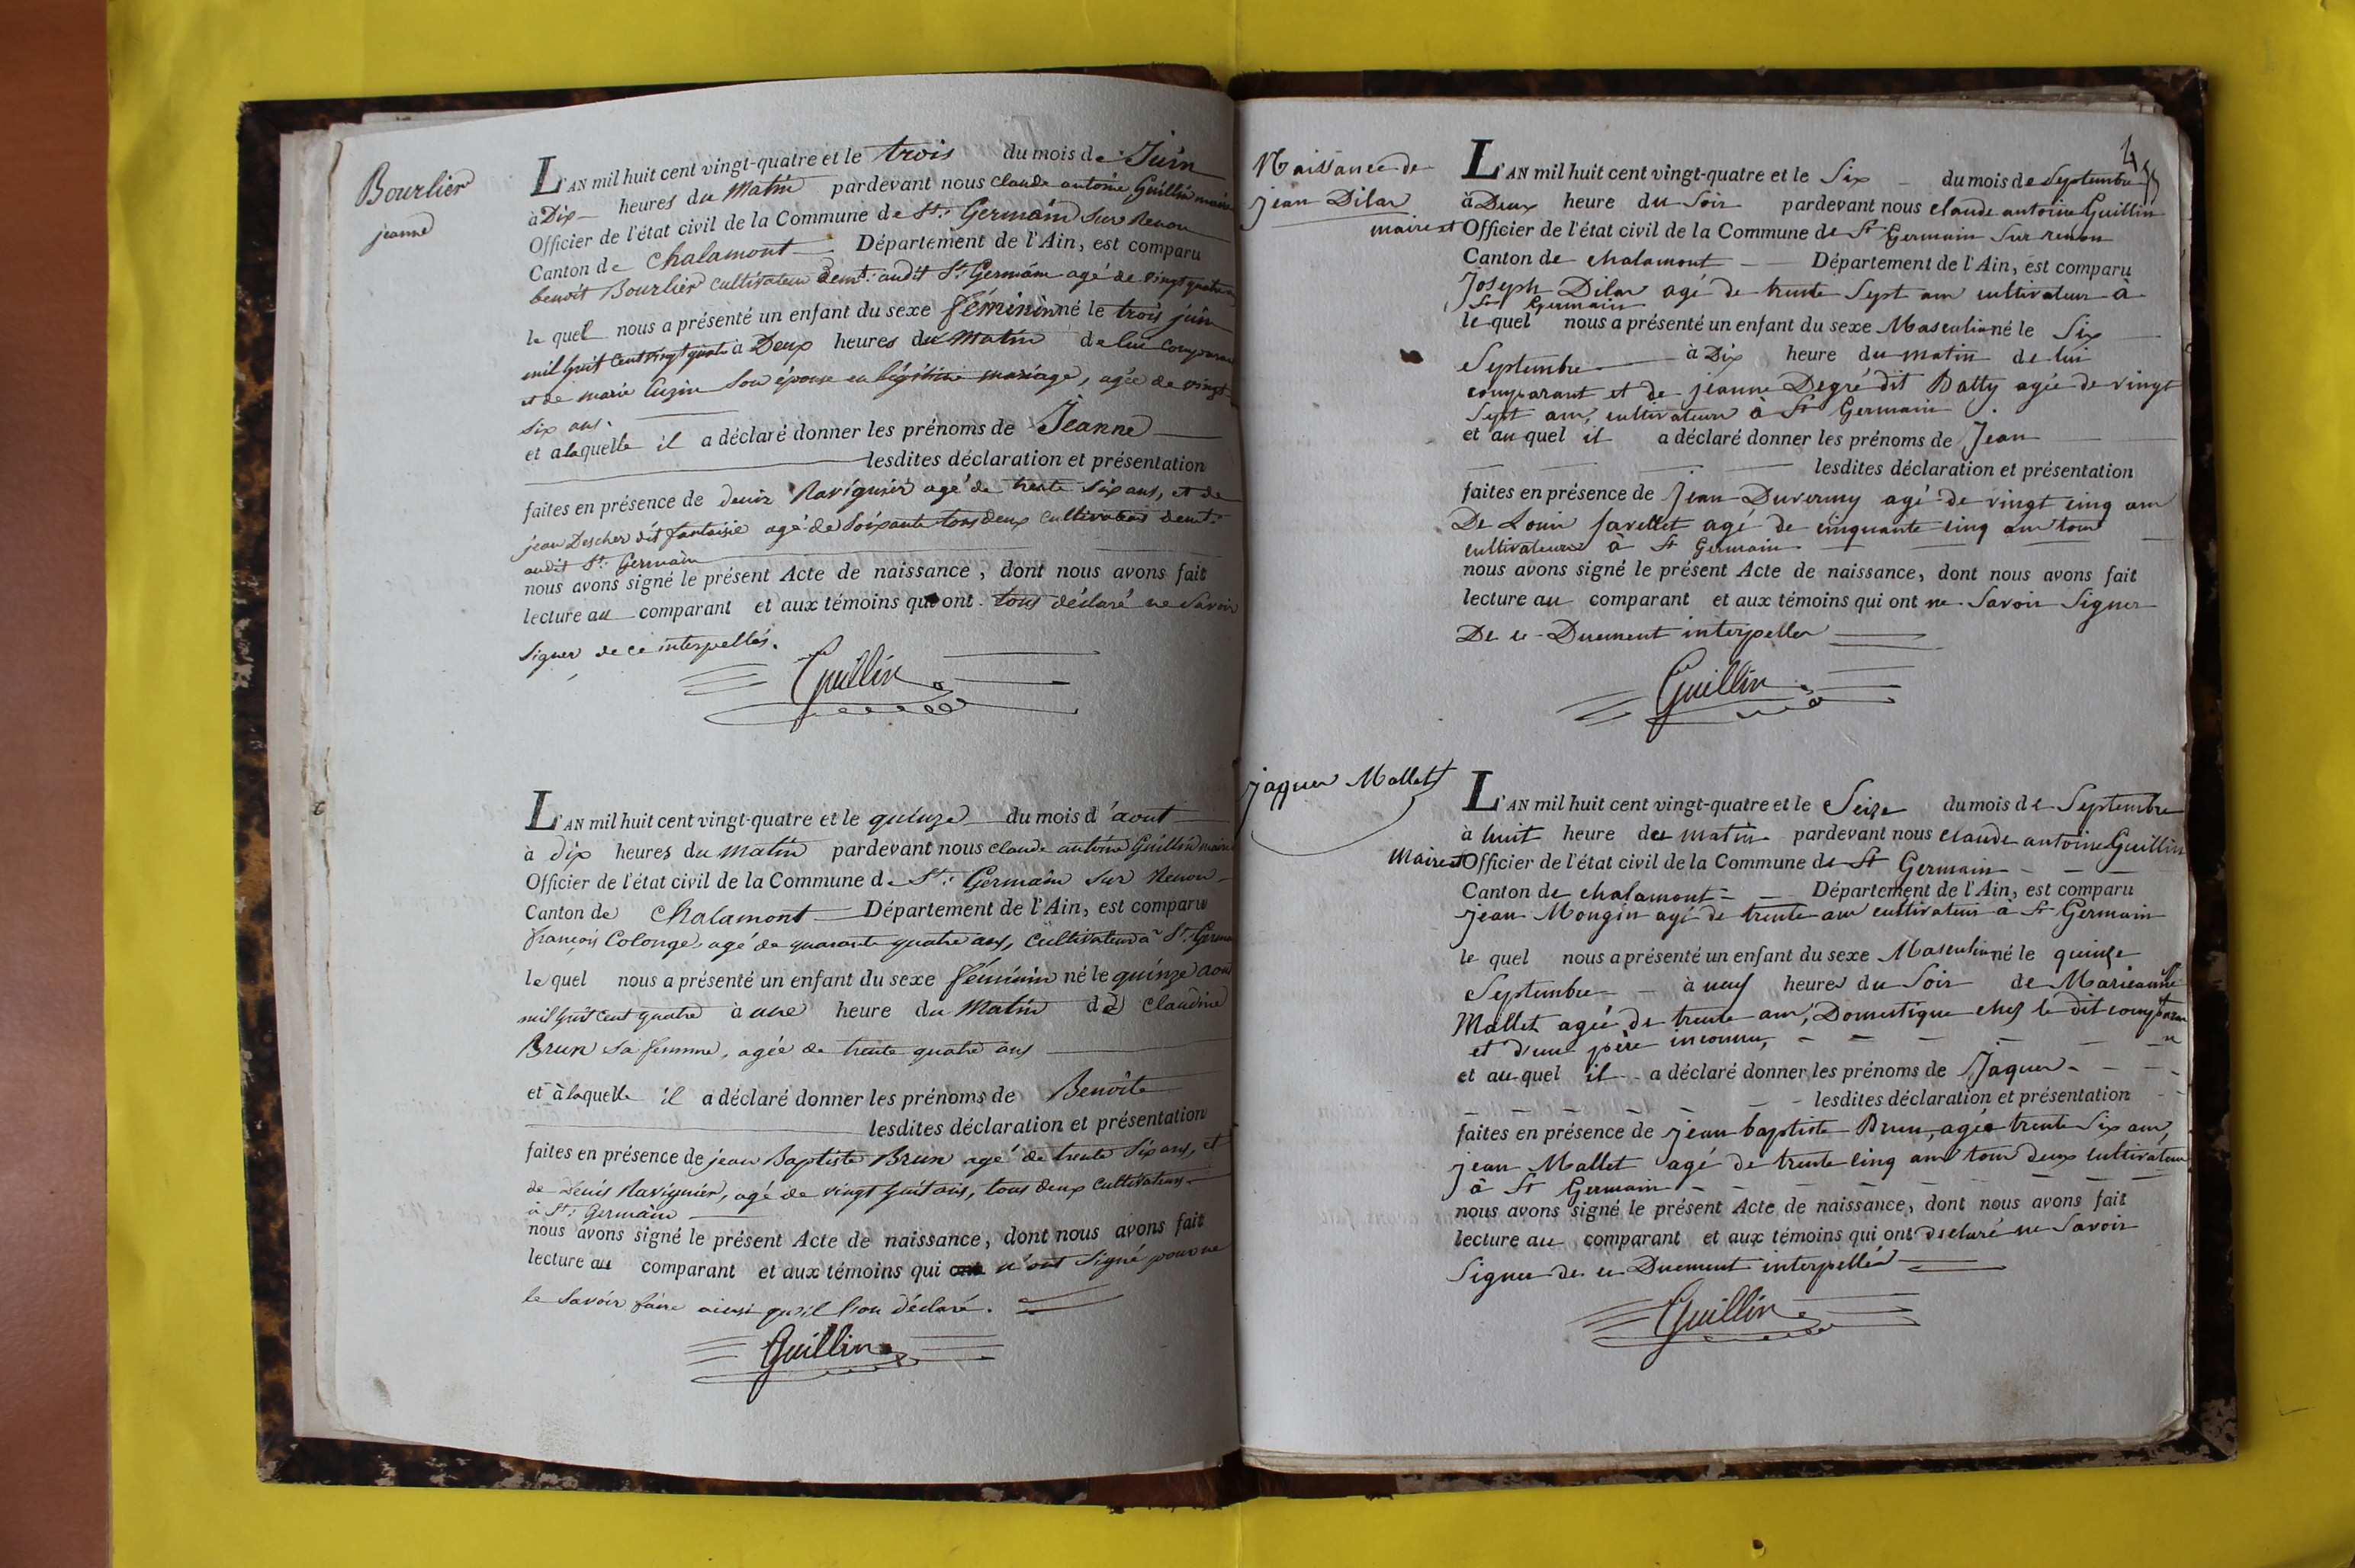 Bourlier
jeanne
L'AN mil huit cent vingt-quatre et le trois du mois de Juin
à Dix heures du Matin pardevant nous claude antoine Guillin maire
Officier de l'état civil de la Commune de St. Germain sur Renon
Canton de Chalamont Département de l'Ain, est comparu
benoit Bourlier cultivateur demt. audit St. Germain agé de vingt quatre
le quel nous a présenté un enfant du sexe féminin né le trois juin
mil huit cent vingt quatre à Deux heures du Matin de lui comparant
et de marie Cuzin son épouse en légitime mariage, agée de vingt
six ans.
et a laquelle il a déclaré donner les prénoms de Jeanne
lesdites déclaration et présentation
faites en présence de denis Ravignier agé de trente six ans, et de
jean Descher dit fantaisie agé de soixante tous deux cultivateurs demt.
audit St. Germain
nous avons signé le présent Acte de naissance, dont nous avons fait
lecture au comparant et aux témoins qui ont tous déclaré ne savoir
signer de ce interpellés.
Guillin
L'AN mil huit cent vingt-quatre et le quinze du mois d'aout
à dix heures du Matin pardevant nous claude antoine Guillin maire
Officier de l'état civil de la Commune de St. Germain sur Renon
Canton de Chalamont Département de l'Ain, est comparu
françois Colonge, agé de quarante quatre ans, cultivateur à St. Germ
le quel nous a présenté un enfant du sexe féminin né le quinze aout
mil huit cent quatre à une heure du Matin de claudine
Brun sa femme, agée de trente quatre ans
et à laquelle il a déclaré donner les prénoms de Benoite
lesdites déclaration et présentation
faites en présence de jean Baptiste Brun agé de trente six ans, et
de Denis Ravignier, agé de vingt huit ans, tous deux cultivateurs
à St. Germain
nous avons signé le présent Acte de naissance, dont nous avons fait
lecture au comparant et aux témoins qui n'ont signé pour ne
le savoir faire ainsi qu'il l'on déclaré.
Guillin
4
Naissance de
jean Dilas
L'AN mil huit cent vingt-quatre et le Six du mois de Septembre
à Deux heure du Soir pardevant nous claude antoine Guillin
maire et Officier de l'état civil de la Commune de St Germain sur renon
Canton de chalamont Département de l'Ain, est comparu
Joseph Dilas agé de trente sept ans cultivateur à
St Germain
le quel nous a présenté un enfant du sexe Masculin né le Six
Septembre à Dix heure du matin de lui
comparant et de jeanne Degré dit Batty agée de vingt
Sept ans, cultivateurs à St Germain
et au quel il a déclaré donner les prénoms de Jean
lesdites déclaration et présentation
faites en présence de Jean Duvernay agé de vingt cinq ans
De Louis Javellet agé de cinquante cinq ans tous
cultivateurs à St Germain
nous avons signé le présent Acte de naissance, dont nous avons fait
lecture au comparant et aux témoins qui ont ne Savoir Signer
De ce Duement interpeller
Guillin
jaques Mallet
L'AN mil huit cent vingt-quatre et le Seize du mois de Septembre
à huit heure du matin pardevant nous claude antoine Guillin
Maire et Officier de l'état civil de la Commune de St Germain
Canton de chalamont Département de l'Ain, est comparu
jean Mongin agé de trente ans cultivateur à St Germain
le quel nous a présenté un enfant du sexe Masculin né le quinze
Septembre à neuf heures du Soir de Marieanne
Mallet agée de trente ans, Domestique chez le dit comparan
et d'un père inconnu,
et au quel il a déclaré donner les prénoms de Jaques
lesdites déclaration et présentation
faites en présence de jean baptiste Brun, agée trente Six ans,
jean Mallet agé de trente cinq ans tous deux cultivateurs
à St Germain
nous avons signé le présent Acte de naissance, dont nous avons fait
lecture au comparant et aux témoins qui ont déclaré ne Savoir
Signer de ce Duement interpellés
Guillin